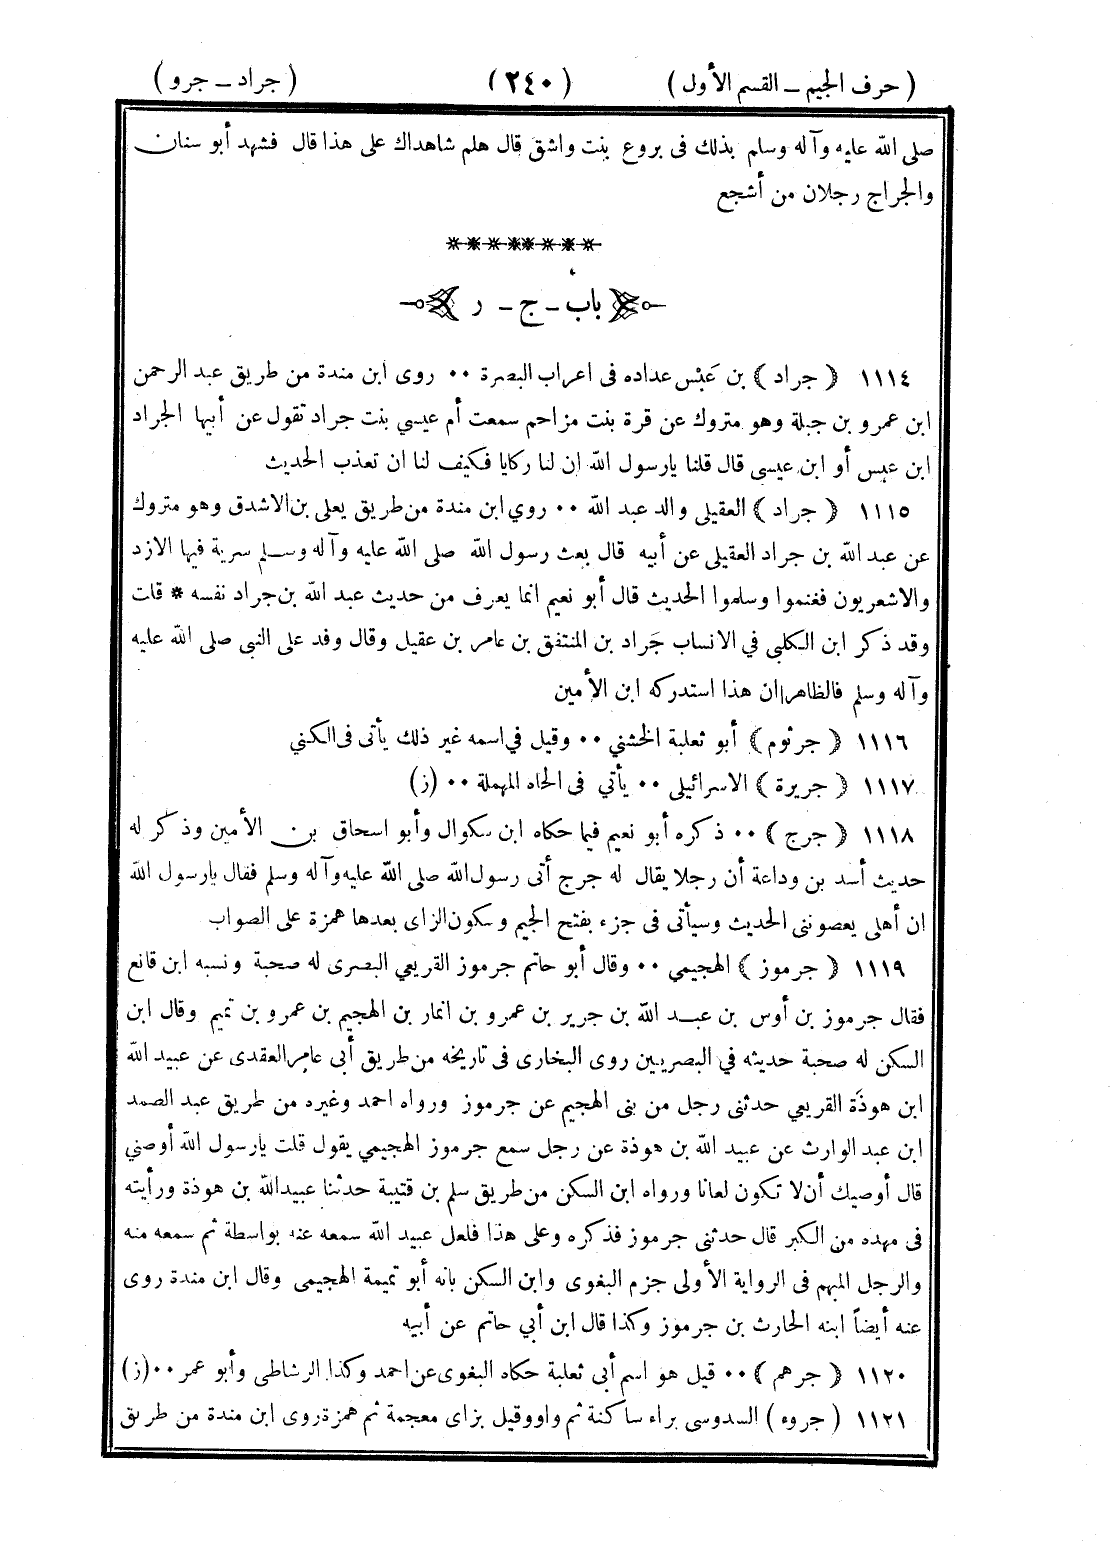 ( حرف الجيم ـ القسم الأول ) ( ٢٤٠ ) ( جراد ـ جرو )
صلى الله عليه وآله وسلم بذلك فى بروع بنت واشق قال هلم شاهداك على هذا قال فشهد أبو سنان
والجراح رجلان من أشجع
باب ـ ج ـ ر
١١١٤ ( جراد ) بن عَبْس عداده فى اعراب البصرة ٠٠ روى ابن مندة من طريق عبد الرحمن
ابن عمرو بن جبلة وهو متروك عن قرة بنت مزاحم سمعت أم عيسي بنت جراد تقول عن أبيها الجراد
ابن عبس أو ابن عيسى قال قلنا يارسول الله ان لنا ركايا فكيف لنا ان تعذب الحديث
١١١٥ ( جراد ) العقيلى والد عبد الله ٠٠ روي ابن مندة من طريق يعلى بن الاشدق وهو متروك
عن عبد الله بن جراد العقيلى عن أبيه قال بعث رسول الله صلى الله عليه وآله وسلم سرية فيها الازد
والاشعريون فغنموا وسلموا الحديث قال أبو نعيم انما يعرف من حديث عبد الله بن جراد نفسه * قلت
وقد ذكر ابن الكلبى في الانساب جَراد بن المنتفق بن عامر بن عقيل وقال وفد على النبى صلى الله عليه
وآله وسلم فالظاهر ان هذا استدركه ابن الأمين
١١١٦ ( جرثوم ) أبو ثعلبة الخشني ٠٠ وقيل في اسمه غير ذلك يأتى فى الكني
١١١٧ ( جريرة ) الاسرائيلى ٠٠ يأتي فى الحاء المهملة ٠٠ (ز)
١١١٨ ( جرج ) ٠٠ ذكره أبو نعيم فيما حكاه ابن سكوال وأبو اسحاق بن الأمين وذكر له
حديث أسد بن وداعة أن رجلا يقال له جرج أتى رسول الله صلى الله عليه وآله وسلم فقال يارسول الله
ان أهلى يعصوننى الحديث وسيأتى فى جزء بفتح الجيم وسكون الزاى بعدها همزة على الصواب
١١١٩ ( جرموز ) الهجيمي ٠٠ وقال أبو حاتم جرموز القريعي البصرى له صحبة ونسبه ابن قانع
فقال جرموز بن أوس بن عبد الله بن جرير بن عمرو بن انمار بن الهجيم بن عمرو بن تميم وقال ابن
السكن له صحبة حديثه في البصريين روى البخارى فى تاريخه من طريق أبى عامر العقدى عن عبيد الله
ابن هوذَة القريعي حدثنى رجل من بنى الهجيم عن جرموز ورواه احمد وغيره من طريق عبد الصمد
ابن عبد الوارث عن عبيد الله بن هوذة عن رجل سمع جرموز الهجيمي يقول قلت يارسول الله أوصني
قال أوصيك أن لا تكون لعانا ورواه ابن السكن من طريق سلم بن قتيبة حدثنا عبيد الله بن هوذة ورأيته
فى مهده من الكبر قال حدثنى جرموز فذكره وعلى هذا فلعل عبيد الله سمعه عنه بواسطة ثم سمعه منه
والرجل المبهم فى الرواية الأولى جزم البغوى وابن السكن بانه أبو تميمة الهجيمي وقال ابن مندة روى
عنه أيضاً ابنه الحارث بن جرموز وكذا قال ابن أبي حاتم عن أبيه
١١٢٠ ( جرهم ) ٠٠ قيل هو اسم أبى ثعلبة حكاه البغوى عن احمد وكذا الرشاطى وأبو عمر ٠٠ (ز)
١١٢١ ( جروء ) السدوسى براء ساكنة ثم واو وقيل بزاى معجمة ثم همزة روى ابن مندة من طريق